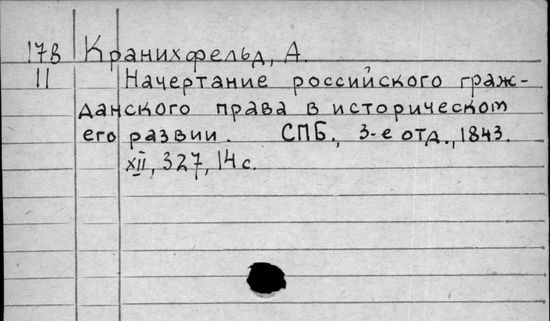 17В Кранихфельд, А.
11 Начертание российского граж-
данского права в историческом
его развии. СПБ., 3-е отд., 1843.
XII, 327, 14 с.